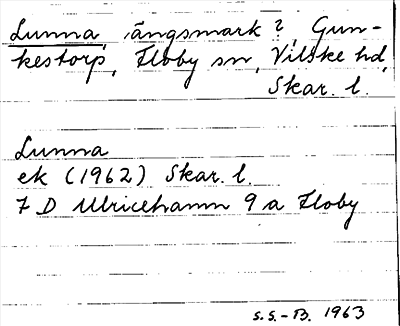 Lunna, ängsmark?, Gun-
kestorp, Floby sn, Vilske hd,
Skar. l.
Lunna
ek (1962) Skar. l.
7 D Ulricehamn 9 a Floby
S.S.-B. 1963